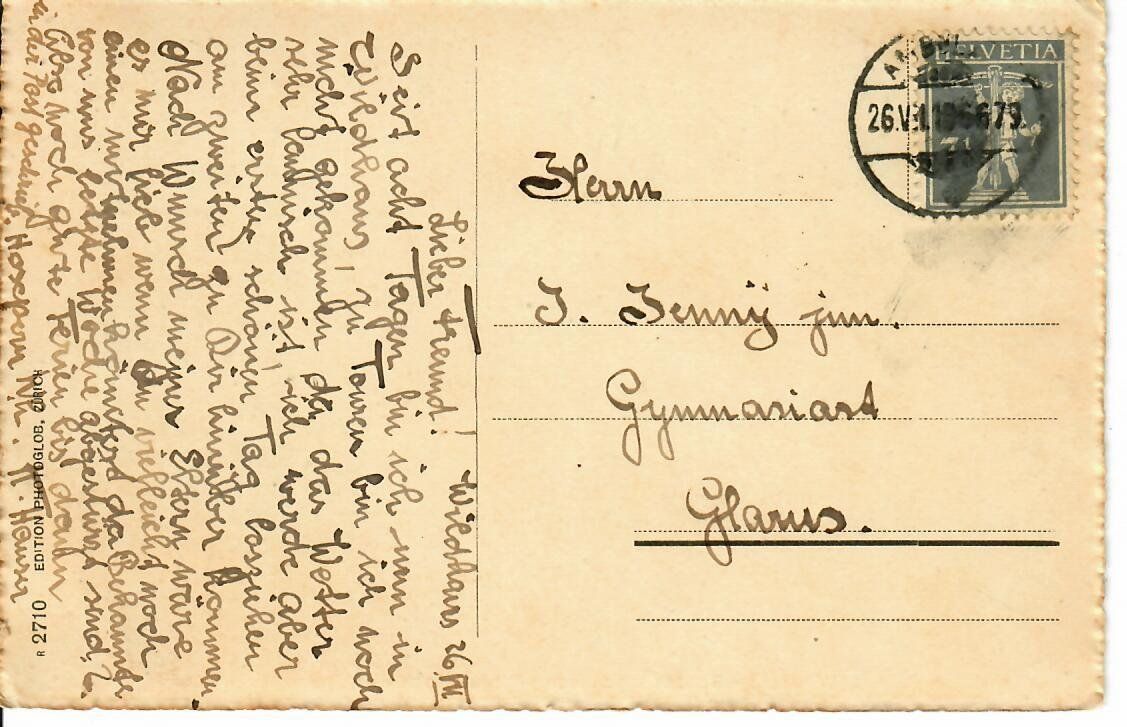 Wildhaus 26. VII.
Lieber Freund!
Seit acht Tagen bin ich nun in
Wildhaus, zu Touren bin ich noch
nicht gekommen da das Wetter
sehr launisch ist, ich werde aber
beim ersten schönen Tag losziehen
am zweiten zu Dir hinüber kommen.
Nach Wunsch meiner Eltern wäre
es mir lieb wenn Du vielleicht noch
einen mitnehmen könntest da Bekannte
von uns letzte Woche abgestürzt sind.
Also noch gute Ferien bis dahin
in der Fast
H. Hauser
R 2710 EDITION PHOTOGLOB, ZÜRICH
HELVETIA
26.VII.
Herrn
J. Jennÿ jun.
Gymnasiast
Glarus.